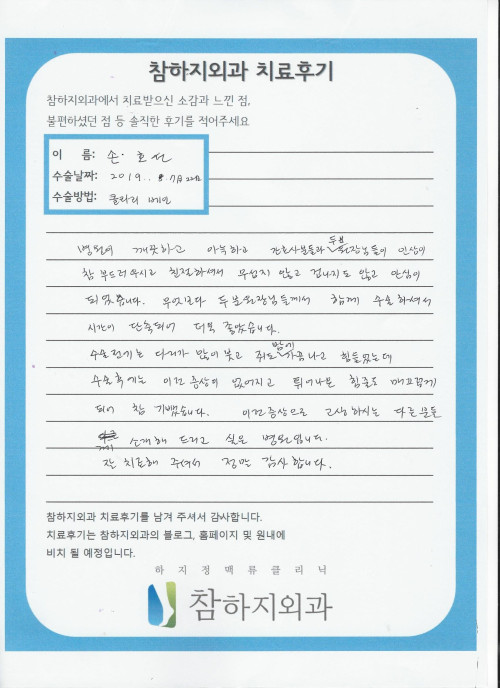 참하지외과 치료후기
참하지외과에서 치료받으신 소감과 느낀 점,
불편하셨던 점 등 솔직한 후기를 적어주세요
이 름: 손·호선
수술날짜: 2019.. 8.7月22日
수술방법: 클라리 베인
병원이 깨끗하고 아늑하고 간호사분들과 두분 원장님들이 인상이
참 부드러우시고 친절하셔서 무섭지 않고 겁나지도 않고 안심이
되었습니다. 무엇보다 두분원장님들께서 함께 수술하셔서
시간이 단축되어 더욱 좋았습니다.
수술전에는 다리가 많이 붓고 쥐도 밤에 가끔나고 힘들었는데
수술후에는 이런 증상이 없어지고 튀어나온 힘줄도 매끄럽게
되어 참 기뻤습니다. 이런 증상으로 고생하시는 다른 분들
소개해 드리고 싶은 병원입니다.
잘 치료해 주셔서 정말 감사합니다.
참하지외과 치료후기를 남겨 주셔서 감사합니다.
치료후기는 참하지외과의 블로그, 홈페이지 및 원내에
비치 될 예정입니다.
하지정맥류클리닉
참하지외과